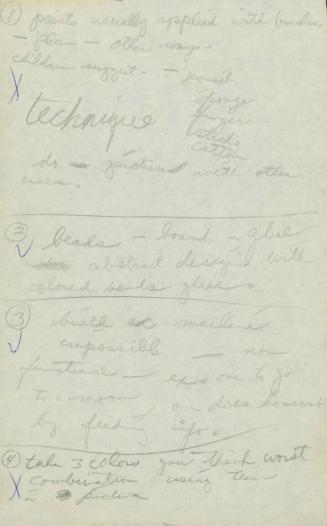 ① paints usually applied with brushes.
- plan - other ways.
children suggest. - pencil
sponge
fingers
sticks
cotton
technique
do pictures with other
uses.
② beads - board - glue
abstract design with
colored beads glue.
③ build a machine
impossible - non
functional - ex. one to go
to moon one does homework
by feeding info.
④ take 3 colors you think worst
combination using them
in picture